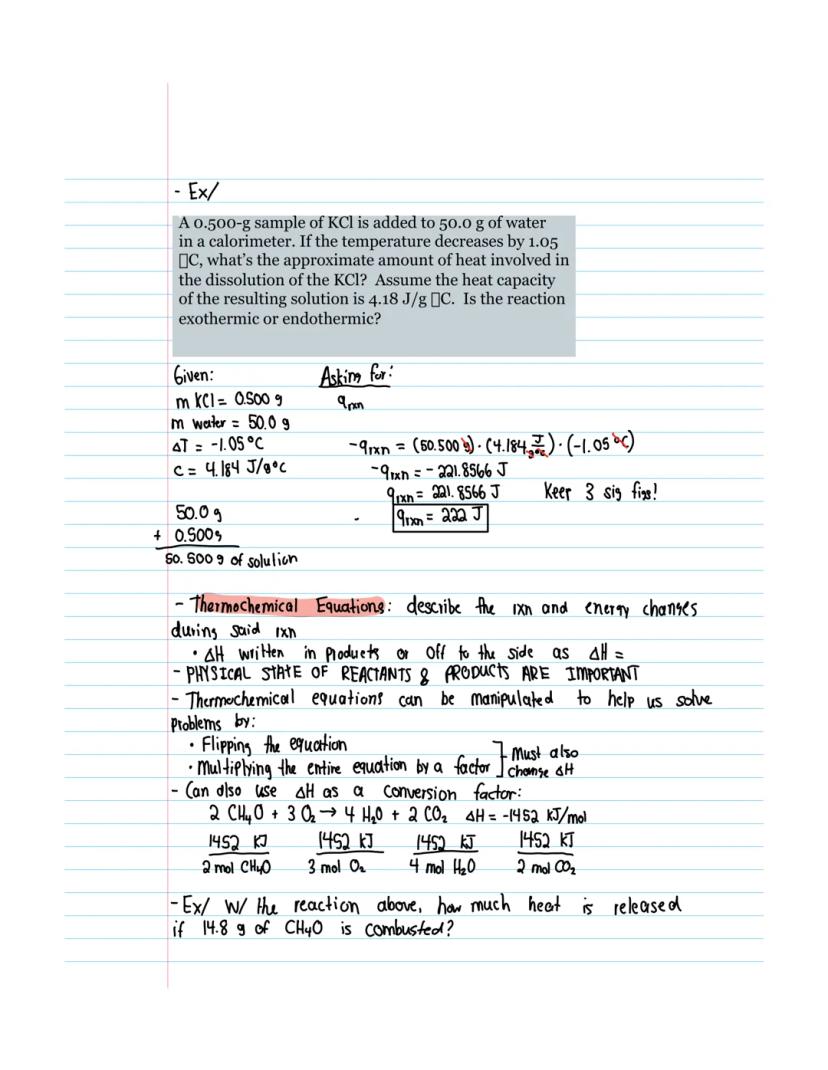 - Ex/
A 0.500-g sample of KCl is added to 50.0 g of water
in a calorimeter. If the temperature decreases by 1.05
▯C, what's the approximate amount of heat involved in
the dissolution of the KCl? Assume the heat capacity
of the resulting solution is 4.18 J/g ▯C. Is the reaction
exothermic or endothermic?
Given: Asking for:
m KCl = 0.500 g qrxn
m water = 50.0 g
ΔT = -1.05°C -qrxn = (50.500 g) · (4.184 J/g°C) · (-1.05 °C)
c = 4.184 J/g°C -qrxn = - 221.8566 J
qrxn = 221.8566 J Keep 3 sig figs!
50.0 g qrxn = 222 J
+ 0.500 g
50.500 g of solution
- Thermochemical Equations: describe the rxn and energy changes
during said rxn
• ΔH written in products or off to the side as ΔH =
- PHYSICAL STATE OF REACTANTS & PRODUCTS ARE IMPORTANT
- Thermochemical equations can be manipulated to help us solve
problems by:
• Flipping the equation
• Multiplying the entire equation by a factor ] Must also change ΔH
- Can also use ΔH as a conversion factor:
2 CH₄O + 3 O₂ → 4 H₂O + 2 CO₂ ΔH = -1452 kJ/mol
1452 kJ 1452 kJ 1452 kJ 1452 kJ
2 mol CH₄O 3 mol O₂ 4 mol H₂O 2 mol CO₂
- Ex/ W/ the reaction above, how much heat is released
if 14.8 g of CH₄O is combusted?